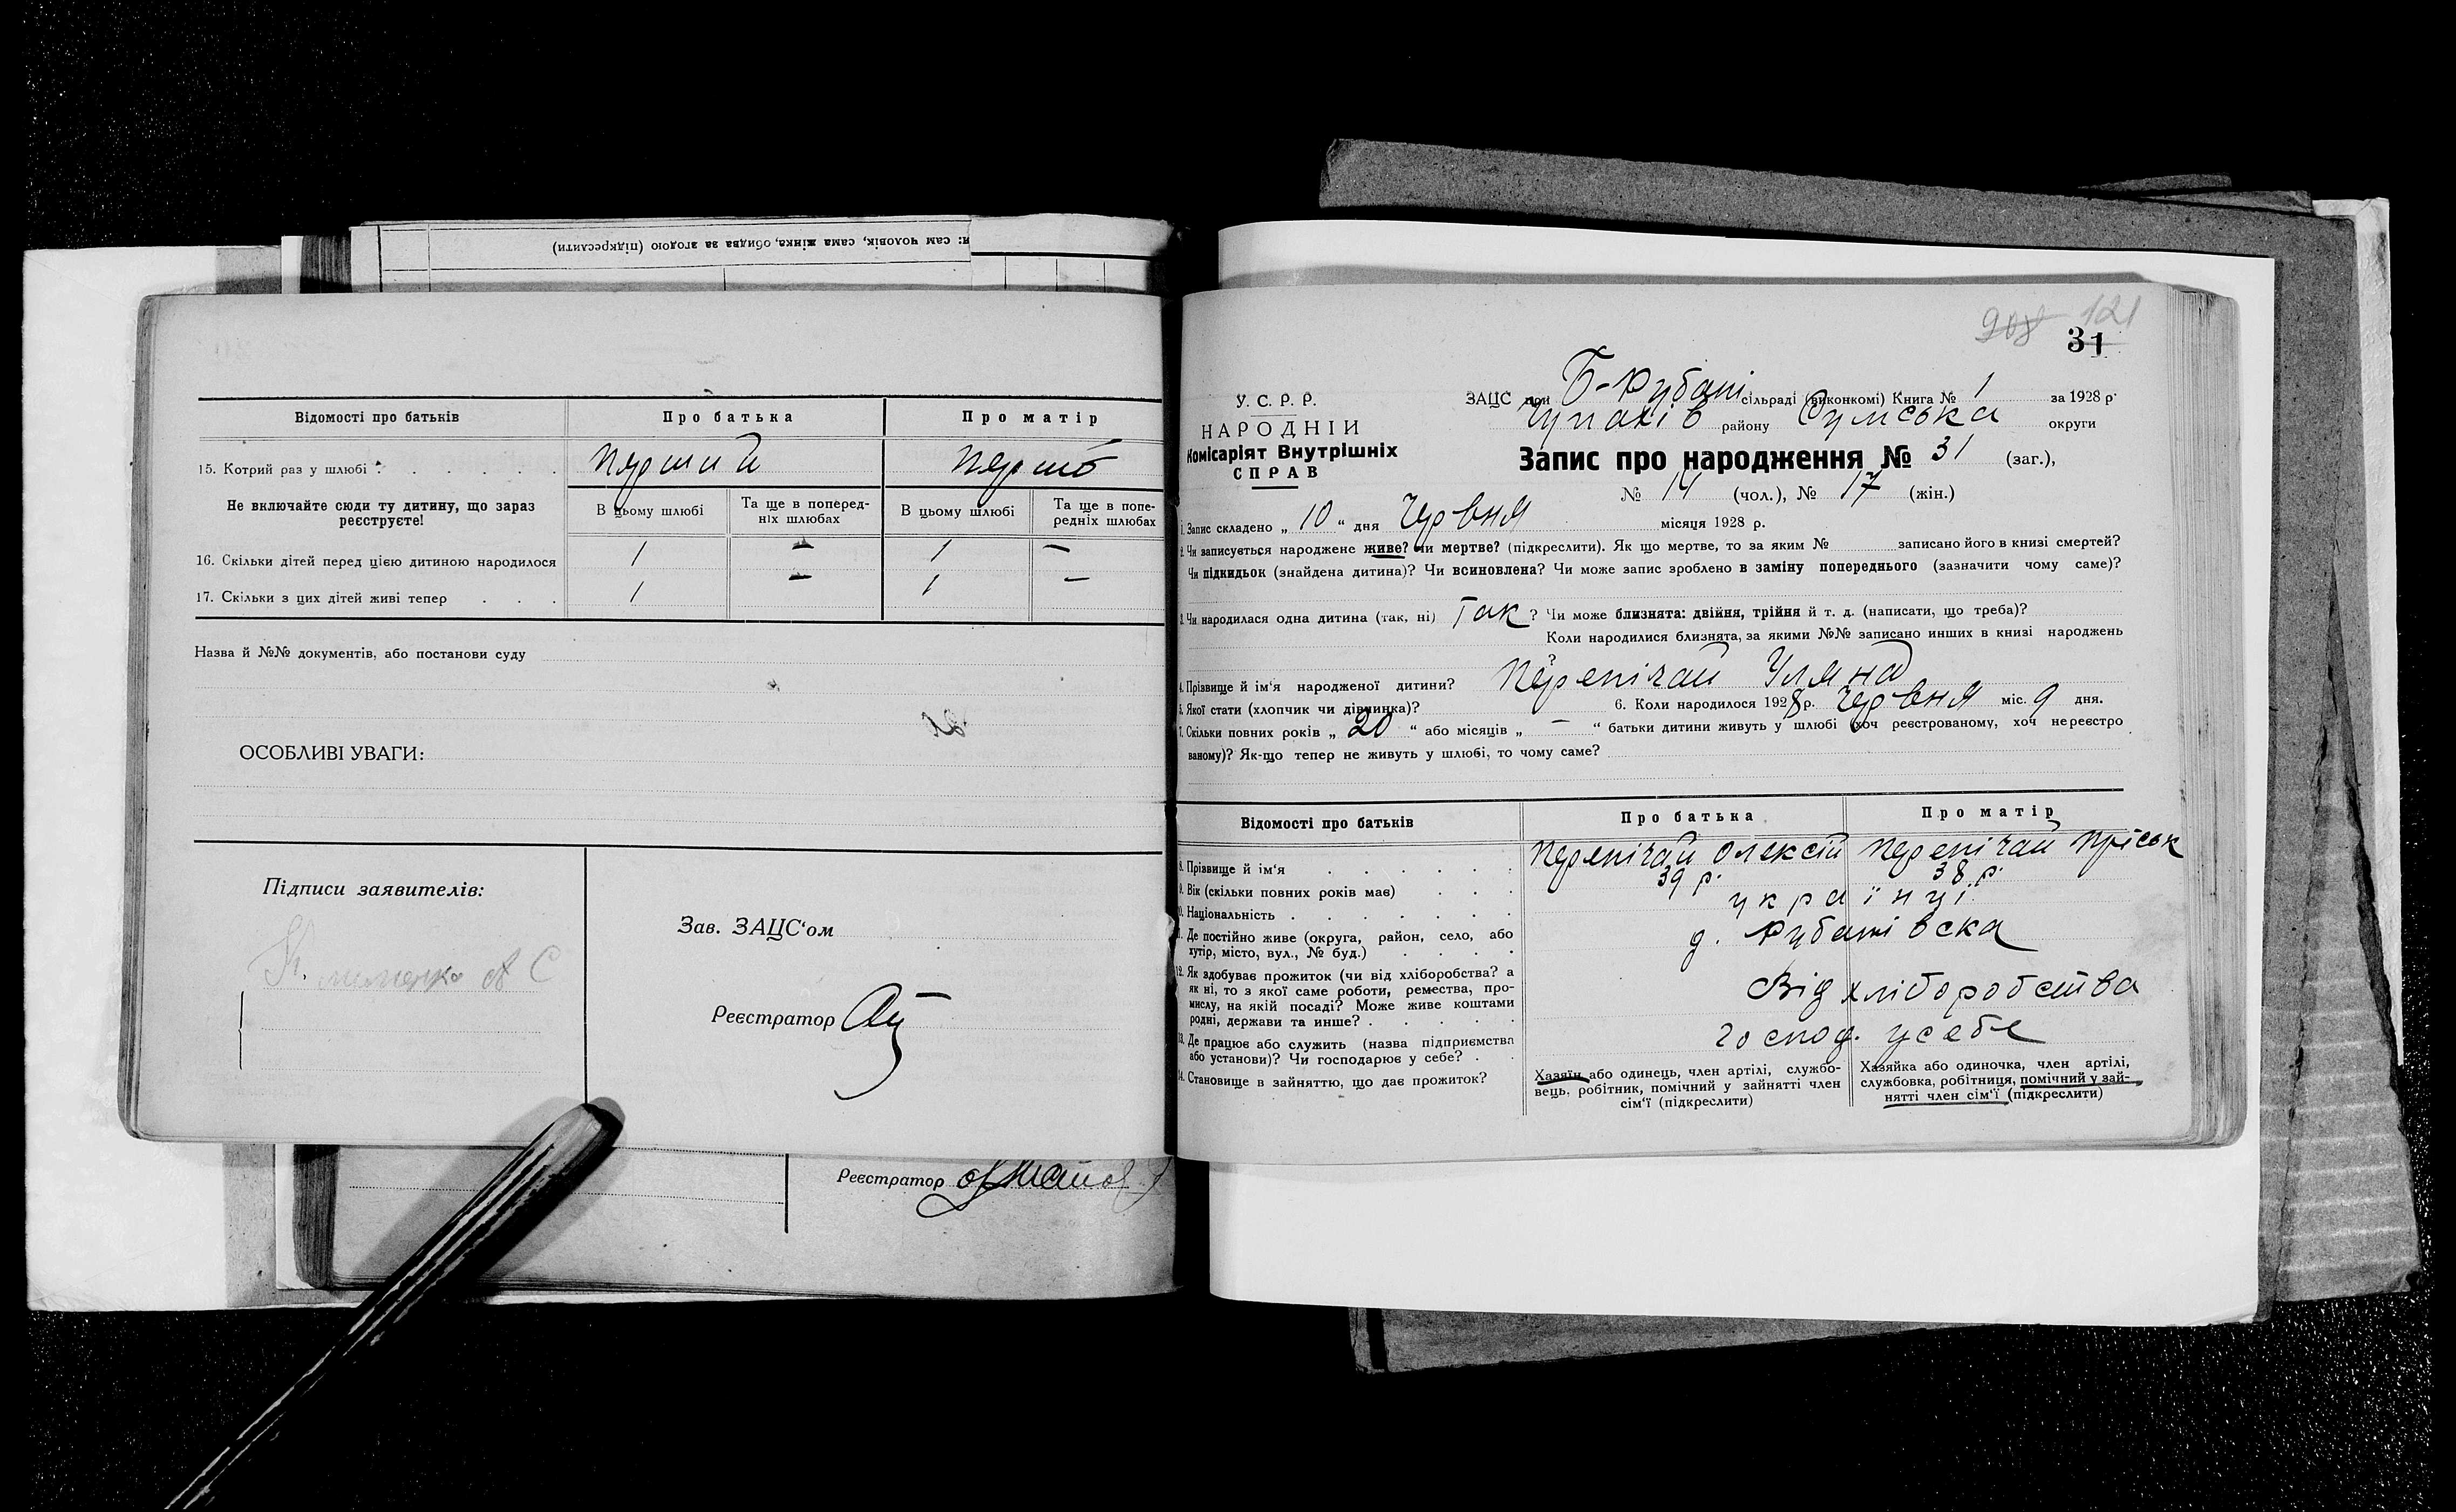 и: сам чоловік, сама жінка, обидва за згодою (підкреслити)
Відомості про батьків
Про батька
Про матір
15. Котрий раз у шлюбі
перший
Не включайте сюди ту дитину, що зараз реєструєте!
В цьому шлюбі
Та ще в поперед-
ніх шлюбах
В цьому шлюбі
Та ще в попе-
редніх шлюбах
16. Скільки дітей перед цією дитиною народилося
1 — 1 —
17. Скільки з цих дітей живі тепер
1 — 1 —
Назва й №№ документів, або постанови суду
ОСОБЛИВІ УВАГИ:
Підписи заявителів:
Зав. ЗАЦС'ом
Реєстратор
Реєстратор
908 121
31
У. С. Р. Р.
НАРОДНІЙ
Комісаріят Внутрішніх
СПРАВ
ЗАЦС при Б-Рубані сільраді (виконкомі) Книга № 1 за 1928 р.
Чупахів району Сумська округи
Запис про народження № 31 (заг.),
№ 14 (чол.), № 17 (жін.)
1. Запис складено „ 10 “ дня Червня місяця 1928 р.
2. Чи записується народжене живе? чи мертве? (підкреслити). Як що мертве, то за яким № записано його в книзі смертей?
Чи підкидьок (знайдена дитина)? Чи всиновлена? Чи може запис зроблено в заміну попереднього (зазначити чому саме)?
3. Чи народилася одна дитина (так, ні) Так ? Чи може близнята: двійня, трійня й т. д. (написати, що треба)?
Коли народилися близнята, за якими №№ записано инших в книзі народжень
?
4. Прізвище й ім'я народженої дитини? Перепічай Уляна
5. Якої стати (хлопчик чи дівчинка)? 6. Коли народилося 1928 р. Червня міс. 9 дня.
7. Скільки повних років „ 20 “ або місяців „ — “ батьки дитини живуть у шлюбі (хоч реєстрованому, хоч нереєстро
ваному)? Як-що тепер не живуть у шлюбі, то чому саме?
Відомості про батьків
Про батька
Про матір
8. Прізвище й ім'я
Перепічай Олексій
Перепічай Пріськ
9. Вік (скільки повних років має)
39 р.
38 р.
10. Національність
українці
11. Де постійно живе (округа, район, село, або
хутір, місто, вул., № буд.)
12. Як здобуває прожиток (чи від хліборобства? а
як ні, то з якої саме роботи, ремества, про-
мислу, на якій посаді? Може живе коштами
родні, держави та инше?
Від хліборобства
13. Де працює або служить (назва підприємства
або установи)? Чи господарює у себе?
господ. усебе
14. Становище в зайняттю, що дає прожиток?
Хазяїн або одинець, член артілі, службо-
вець, робітник, помічний у зайнятті член
сім'ї (підкреслити)
Хазяйка або одиночка, член артілі,
службовка, робітниця, помічний у зай-
нятті член сім'ї (підкреслити)